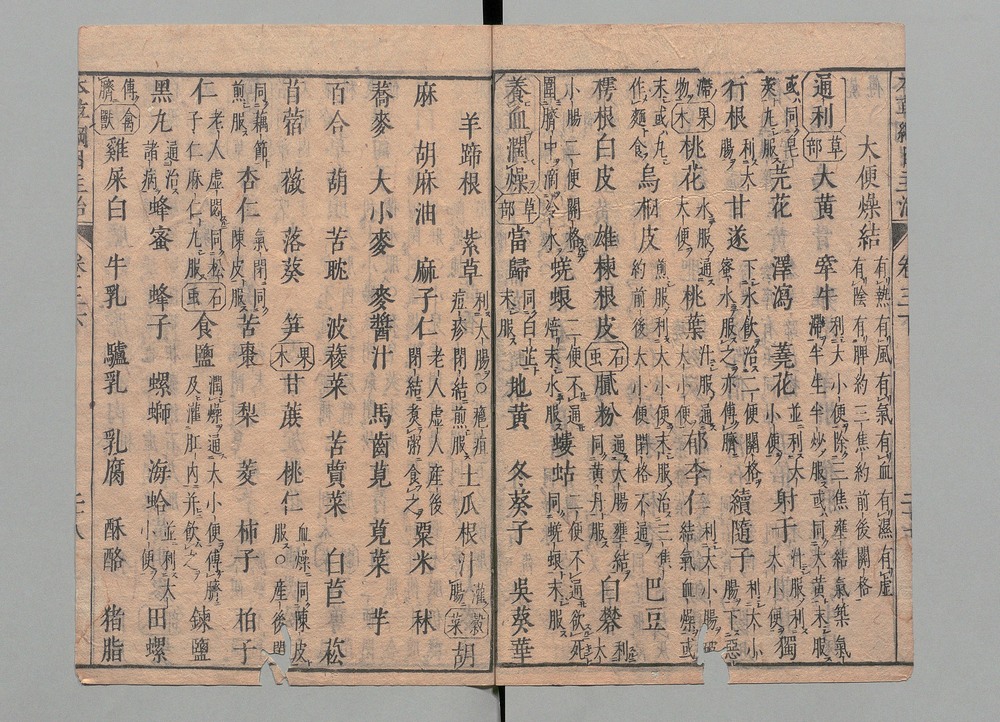 大便燥結 有熱有風有氣有血有濕有虛有陰有脾約三焦約前後關格
通利 草部 大黃 牽牛 利大小便除三焦壅結氣築氣滯半生半炒服或同大黃末服
或同皂莢丸服 芫花 澤瀉 蕘花 並利大小便 射干 汁服利大小便 獨
行根 利大腸 甘遂 下水飲治二便關格蜜水服之亦傅臍 續隨子 利大小腸下惡
滯物 果木 桃花 水服通大便 桃葉 汁服通大小便 郁李仁 利大小腸破結氣血燥或
末或丸作麵食 烏桕皮 煎服利大小便末服治三焦約前後大小便關格不通 巴豆
樗根白皮 雄楝根皮 石虫 膩粉 通大腸壅結同黃丹服 白礬 利大
小腸二便關格圍臍中滴冷水 蜣蜋 二便不通焙末水服 螻蛄 二便不通欲死同蜣蜋末服
養血潤燥 草部 當歸 同白芷末服 地黃 冬葵子 吳葵華
羊蹄根 紫草 利大腸○癰疽痘疹閉結煎服 土瓜根汁 灌腸 穀菜 胡
麻 胡麻油 麻子仁 老人虛人產後閉結煮粥食之 粟米 秫
蕎麥 大小麥 麥醬汁 馬齒莧 莧菜 芋
百合 葫 苦耽 波薐菜 苦蕒菜 白苣 菘
苜蓿 薇 落葵 笋 果木 甘蔗 桃仁 血燥同陳皮服○產後閉
同藕節煎服 杏仁 氣閉同陳皮服 苦棗 梨 菱 柿子 柏子
仁 老人虛閟同松子仁麻仁丸服 石虫 食鹽 潤燥通大小便傅臍及灌肛內并飲之 鍊鹽
黑丸 通治諸病 蜂蜜 蜂子 螺螄 海蛤 並利大小便 田螺
傅臍 禽獸 雞屎白 牛乳 驢乳 乳腐 酥酪 猪脂